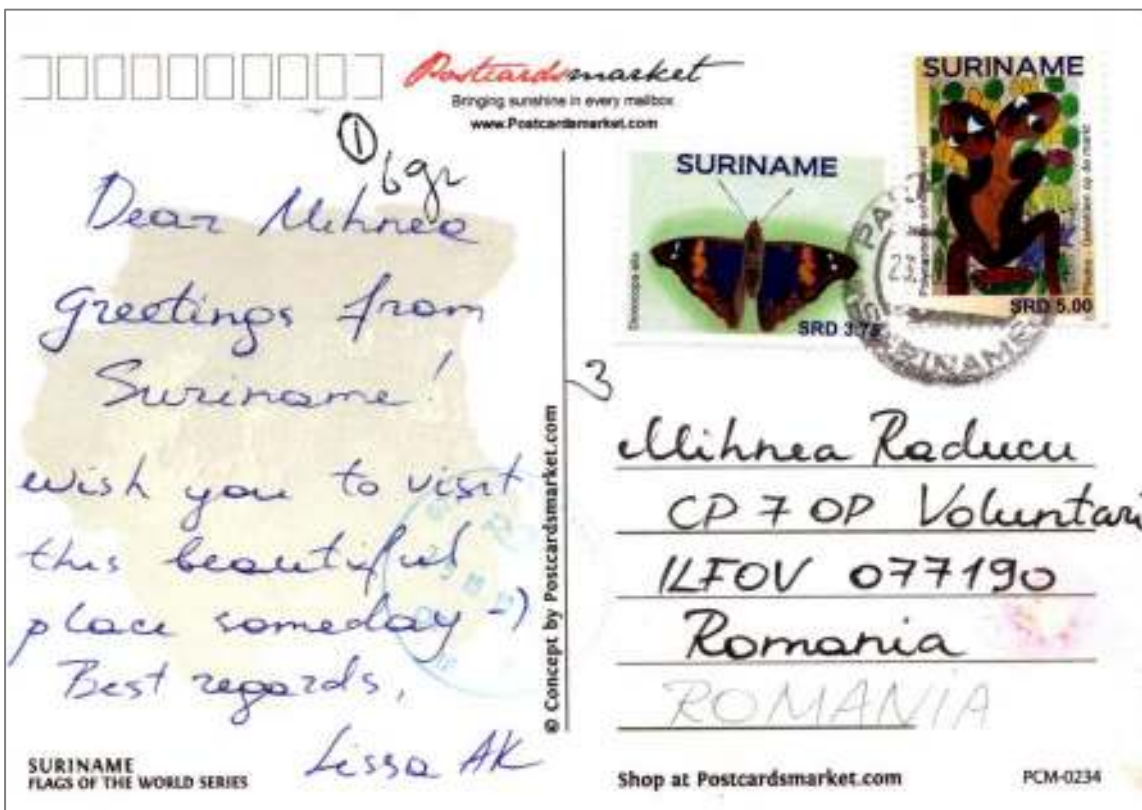 Postcardsmarket
Bringing sunshine in every mailbox
www.Postcardsmarket.com
1
6gr
Dear Mihnea
Greetings from
Suriname!
wish you to visit
this beautiful
place someday -)
Best regards,
Lissa AK
SURINAME
FLAGS OF THE WORLD SERIES
© Concept by Postcardsmarket.com
SURINAME
SRD 3.75
SURINAME
SRD 5.00
SURINAME
3
Mihnea Raducu
CP 7 OP Voluntari
ILFOV 077190
Romania
ROMANIA
Shop at Postcardsmarket.com
PCM-0234